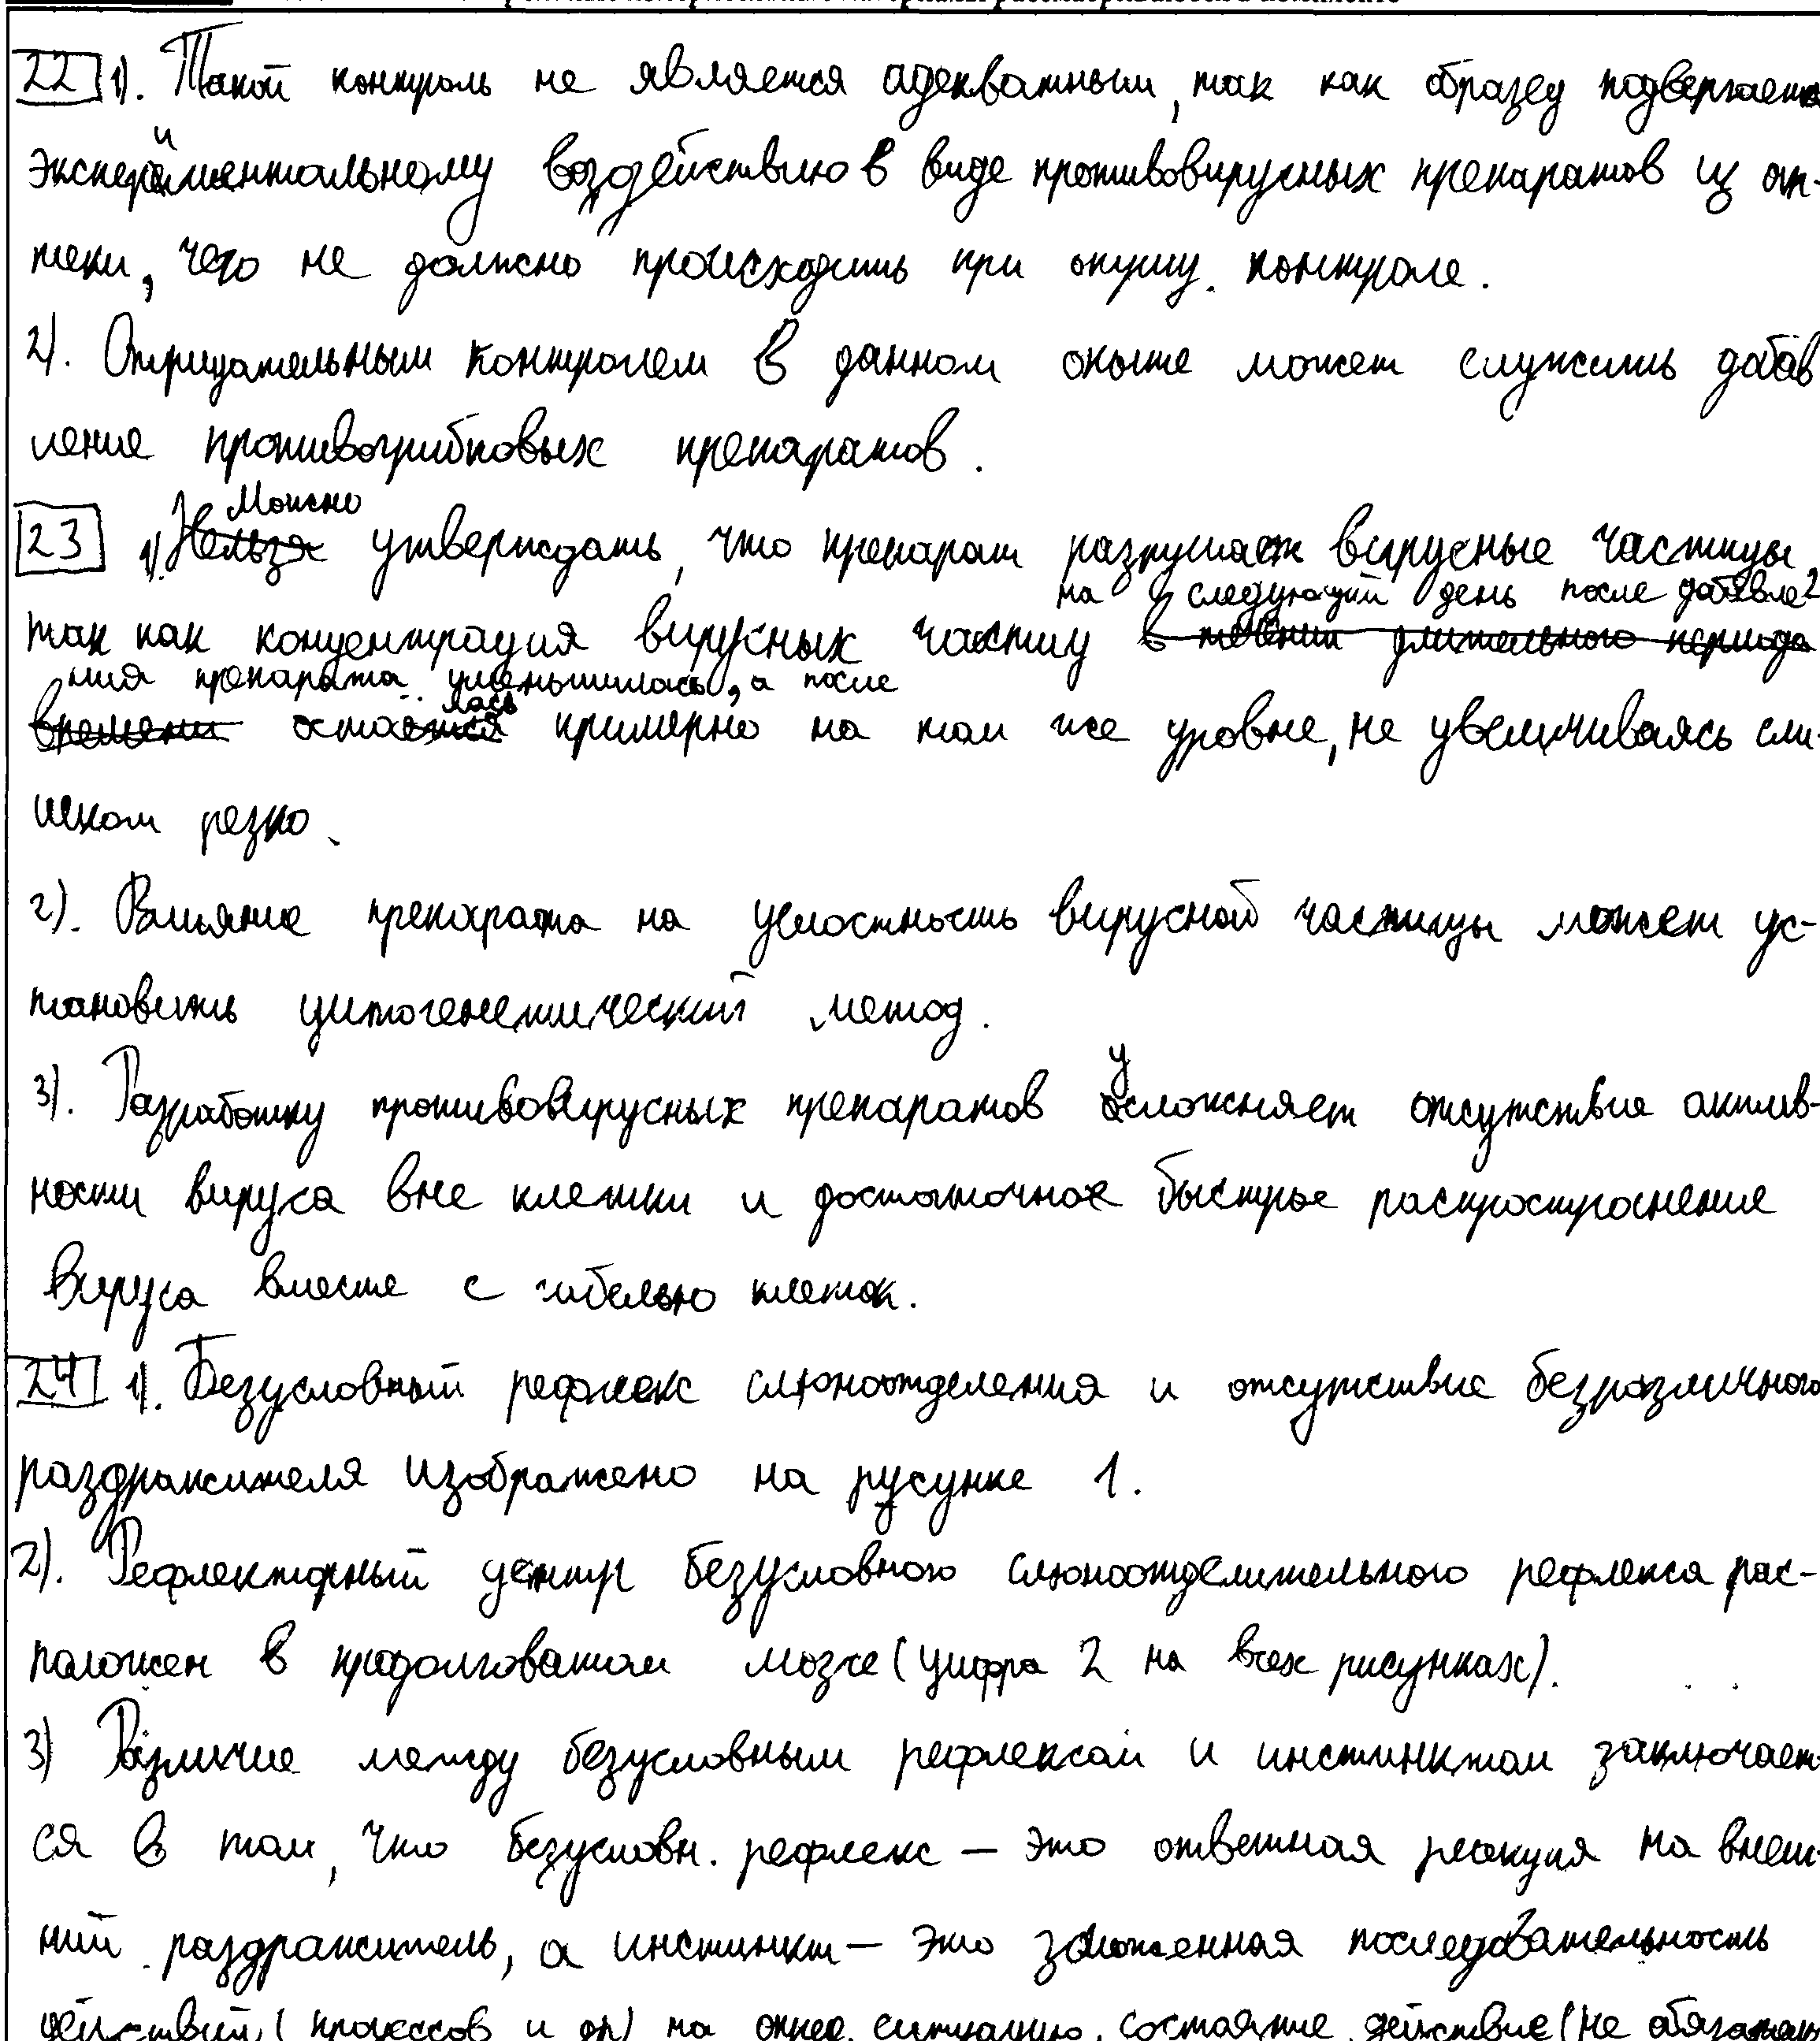 22 1). Такой контроль не является адекватным, так как образец подвергается
экспериментальному воздействию в виде противовирусных препаратов из ап-
теки, чего не должно происходить при отриц. контроле.
2). Отрицательным контролем в данном опыте может служить добав
ление противогрибковых препаратов.
Можно
23 1). Нельзя утверждать, что препарат разрушает вирусные частицы,
на следующий день после добавле
так как концентрация вирусных частиц в течении длительного периода
ния препарата уменьшилась, а после
времени осталась примерно на том же уровне, не увеличиваясь сли-
шком резко.
2). Влияние препарата на целостность вирусной частицы может ус-
тановить цитогенетический метод.
3). Разработку противовирусных препаратов усложняет отсутствие актив-
ности вируса вне клетки и достаточное быстрое распространение
вируса вместе с гибелью клеток.
24 1). Безусловный рефлекс слюноотделения и отсутствие безразличного
раздражителя изображено на русунке 1.
2). Рефлекторный центр безусловного слюноотделительного рефлекса рас-
положен в продолговатом мозге (цифра 2 на всех рисунках).
3) Различие между безусловным рефлексом и инстинктом заключает-
ся в том, что безусловн. рефлекс — это ответная реакция на внеш-
ний раздражитель, а инстинкт — это заложенная последовательность
действий (процессов и др) на опред. ситуацию, состояние, действие (не обязатель